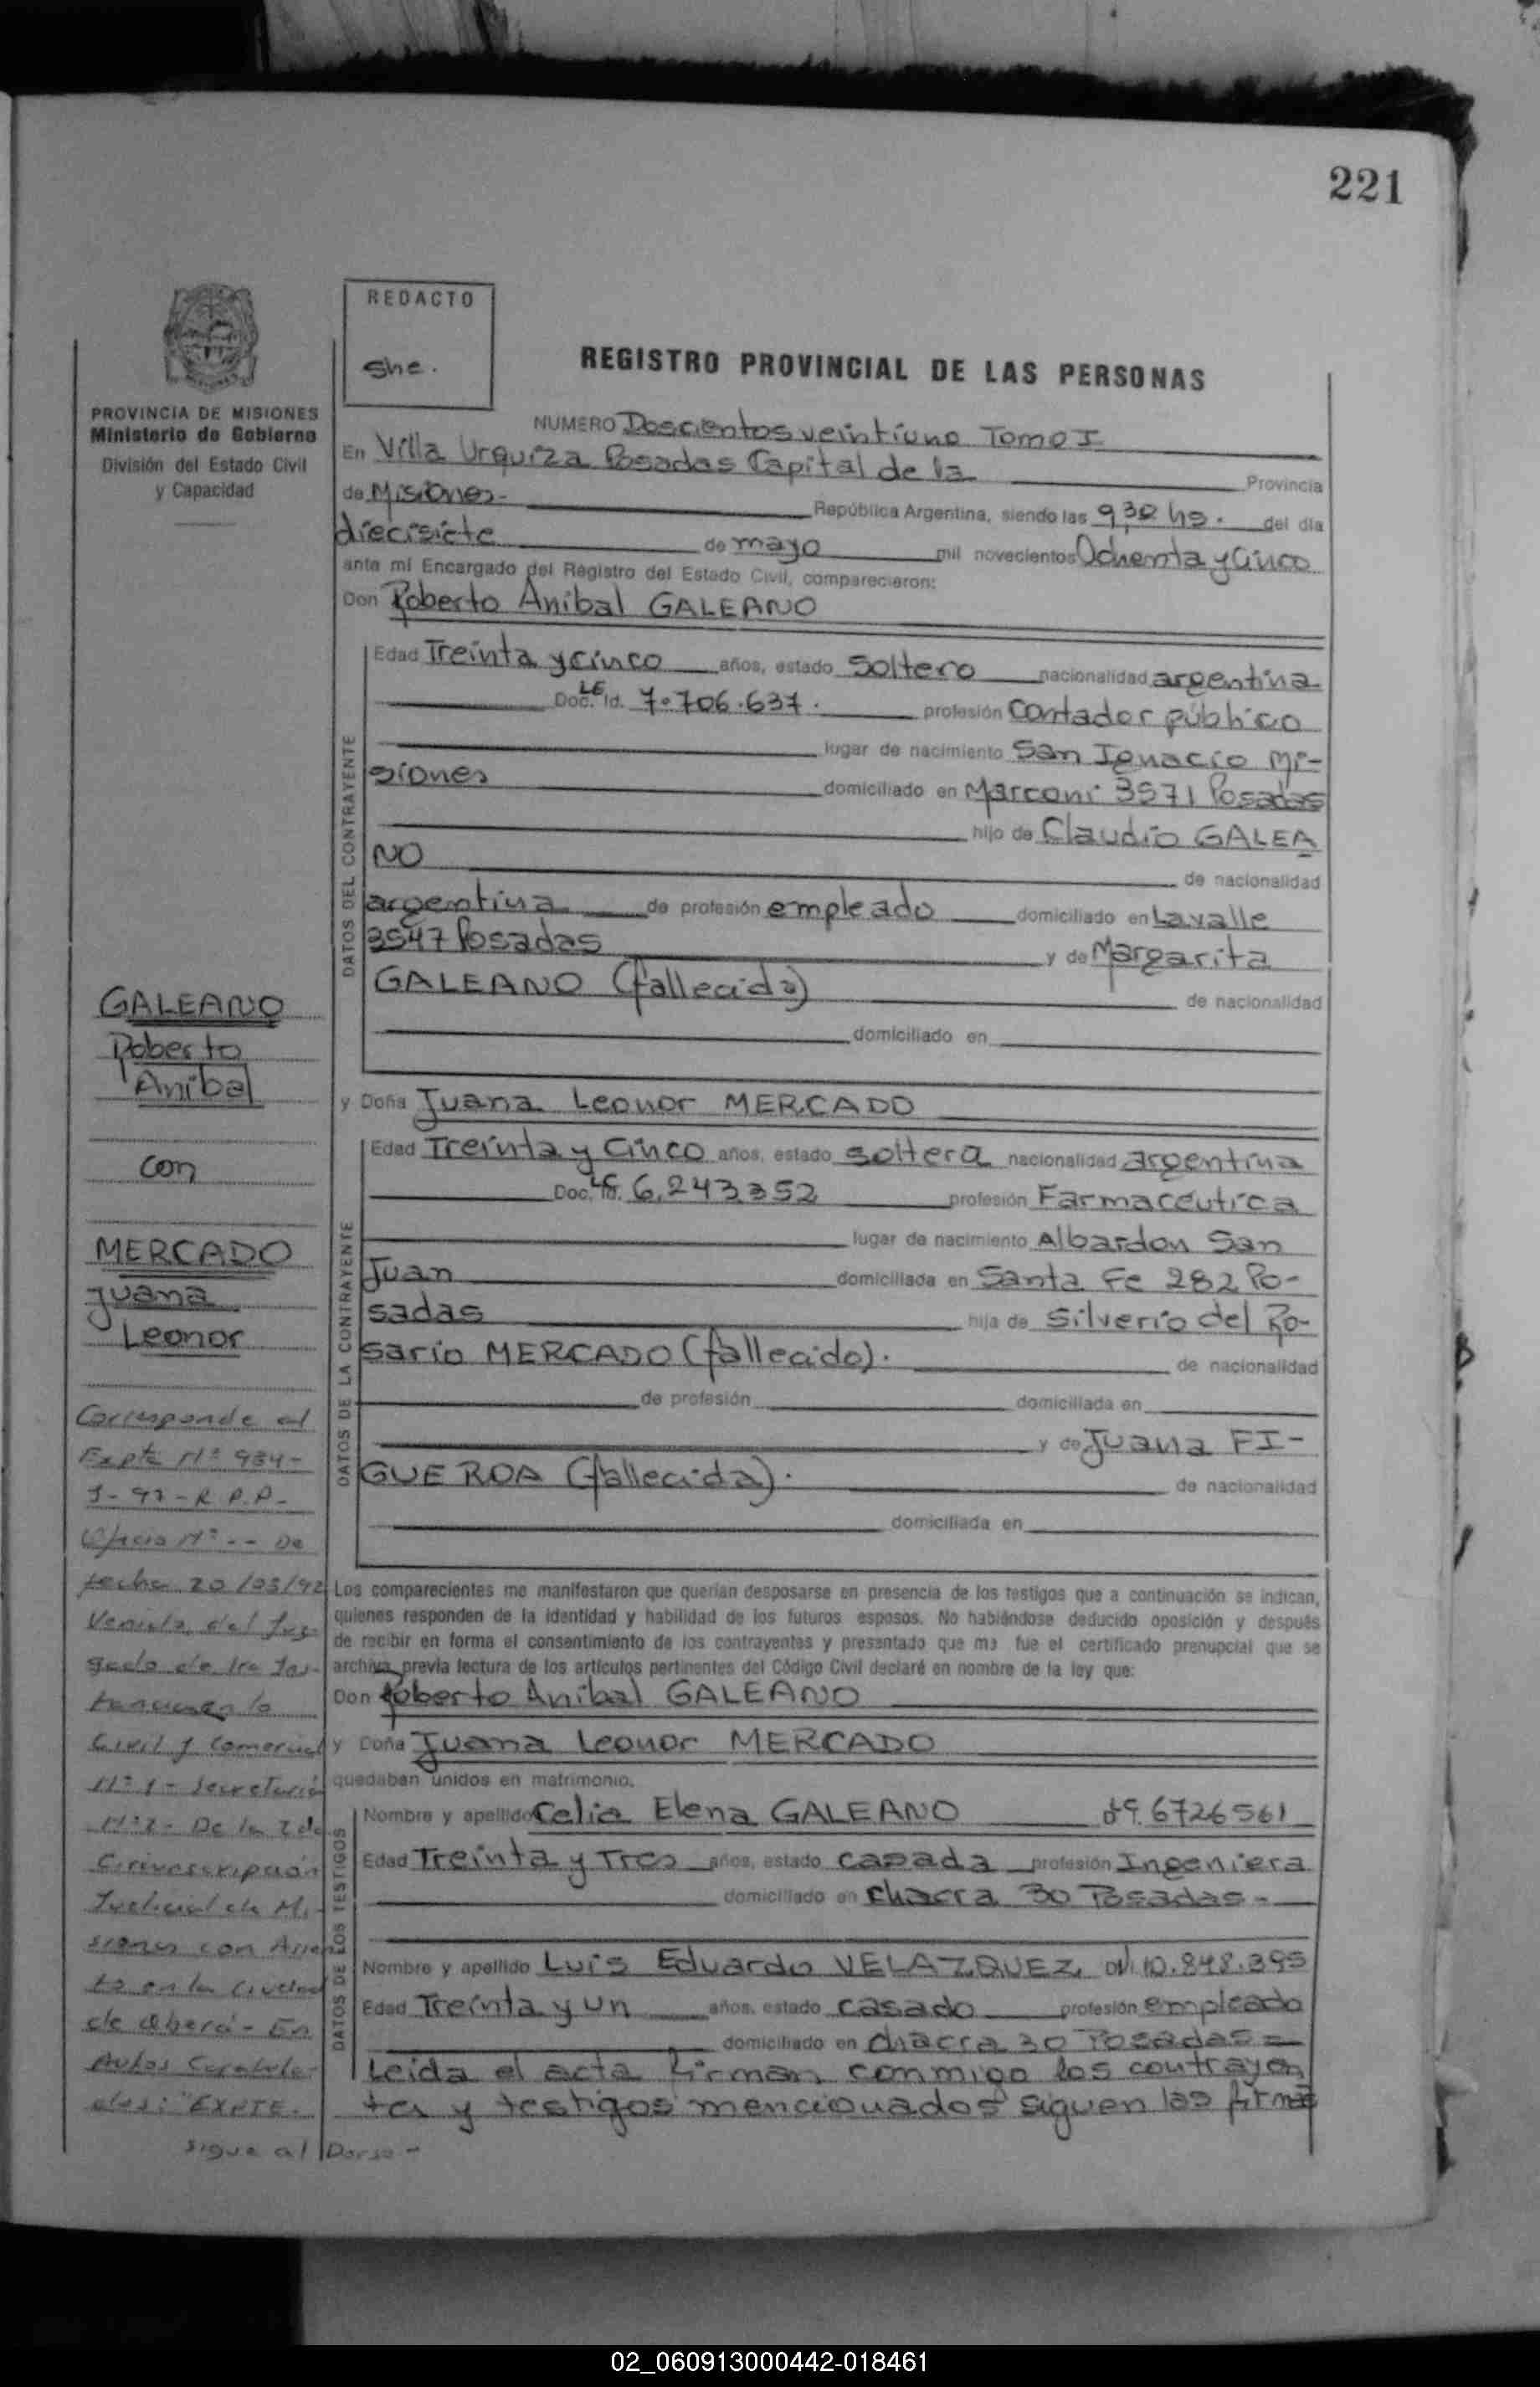 221
REDACTO
She.
REGISTRO PROVINCIAL DE LAS PERSONAS
PROVINCIA DE MISIONES
Ministerio de Gobierno
División del Estado Civil
y Capacidad
NUMERO Doscientos veintiuno Tomo I
En Villa Urquiza Posadas Capital de la Provincia
de Misiones- República Argentina, siendo las 9,30 hs. del día
diecisiete de mayo mil novecientos Ochenta y Cinco
ante mí Encargado del Registro del Estado Civil, comparecieron:
Don Roberto Anibal GALEANO
DATOS DEL CONTRAYENTE
Edad Treinta y cinco años, estado Soltero nacionalidad argentina
Doc. Id. LE 7.706.637. profesión Contador público
lugar de nacimiento San Ignacio Mi-
siones domiciliado en Marconi 3571 Posadas
hijo de Claudio GALEA
NO de nacionalidad
argentina de profesión empleado domiciliado en Lavalle
3547 Posadas y de Margarita
GALEANO (fallecida) de nacionalidad
domiciliado en
y Doña Juana Leonor MERCADO
DATOS DE LA CONTRAYENTE
Edad Treinta y Cinco años, estado soltera nacionalidad argentina
Doc. Id. LC 6.243.352 profesión Farmacéutica
lugar de nacimiento Albardon San
Juan domiciliada en Santa Fe 282 Po-
sadas hija de Silverio del Ro-
sario MERCADO (fallecido). de nacionalidad
de profesión domiciliada en
y de Juana FI-
GUEROA (fallecida). de nacionalidad
domiciliada en
Los comparecientes me manifestaron que querían desposarse en presencia de los testigos que a continuación se indican,
quienes responden de la identidad y habilidad de los futuros esposos. No habiéndose deducido oposición y después
de recibir en forma el consentimiento de los contrayentes y presentado que me fue el certificado prenupcial que se
archiva previa lectura de los artículos pertinentes del Código Civil declaré en nombre de la ley que:
Don Roberto Anibal GALEANO
y Doña Juana Leonor MERCADO
quedaban unidos en matrimonio.
DATOS DE LOS TESTIGOS
Nombre y apellido Celia Elena GALEANO 6726561
Edad Treinta y Tres años, estado casada profesión Ingeniera
domiciliado en Chacra 30 Posadas-
Nombre y apellido Luis Eduardo VELAZQUEZ 10.848.395
Edad Treinta y un años, estado casado profesión empleado
domiciliado en chacra 30 Posadas=
Leida el acta firman conmigo los contrayen
tes y testigos mencionados siguen las firmas
GALEANO
Roberto
Anibal
con
MERCADO
Juana
Leonor
Corresponde al
Expte Nº 934-
J-92-R.P.P.-
Oficio Nº -- De
fecha 20/03/92
Venida del Juz-
gado de 1ra Ins-
tancia en lo
Civil y Comercial
Nº 1- Secretaría
Nº 2- De la 2da
Circunscripción
Judicial de Mi-
siones con Asien
to en la Ciudad
de Oberá- En
Autos Caratula-
dos: "EXPTE.
sigue al Dorso-
02_060913000442-018461